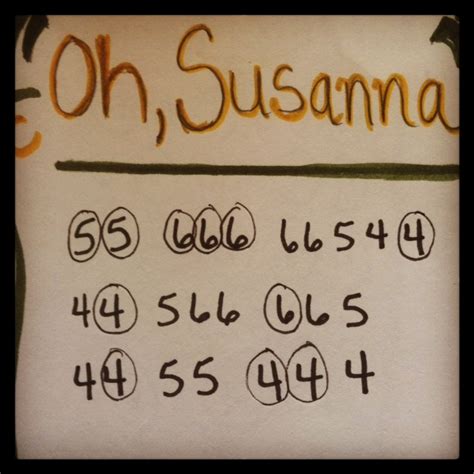 Oh, Susanna
55 666 66544
44 566 665
44 55 444